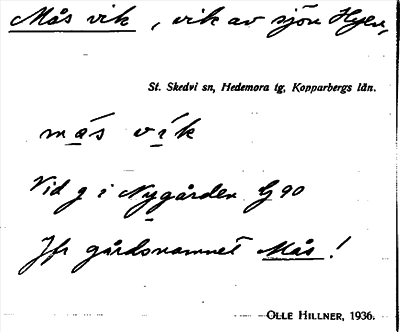 Mås vik, vik av sjön Hyen,
St. Skedvi sn, Hedemora tg, Kopparbergs län.
más vík
Vid g i Nygården G 90
Jfr gårdsnamnet Mås!
OLLE HILLNER, 1936.